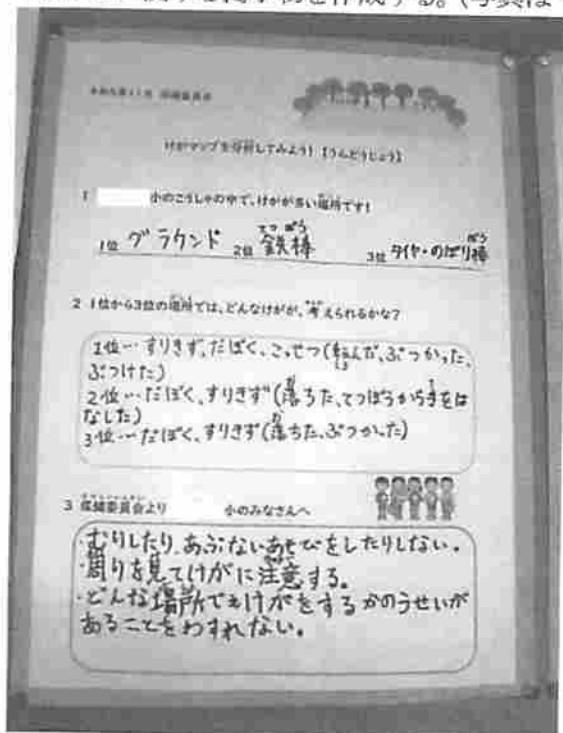 けがマップを分析してみよう！【うんどうじょう】
1 小のこうしゃの中で、けがが多い場所です！
1位 グラウンド 2位 鉄棒 3位 タイヤ・のぼり棒
2 1位から3位の場所では、どんなけがが、考えられるかな？
1位…すりきず、だぼく、こっせつ(転んだ、ぶつかった、
ぶつけた)
2位…だぼく、すりきず(落ちた、てつぼうから手をは
なした)
3位…だぼく、すりきず(落ちた、ぶつかった)
3 保健委員会より 小のみなさんへ
・むりしたり、あぶないあそびをしたりしない。
・周りを見てけがに注意する。
・どんな場所でもけがをするかのうせいが
あることをわすれない。